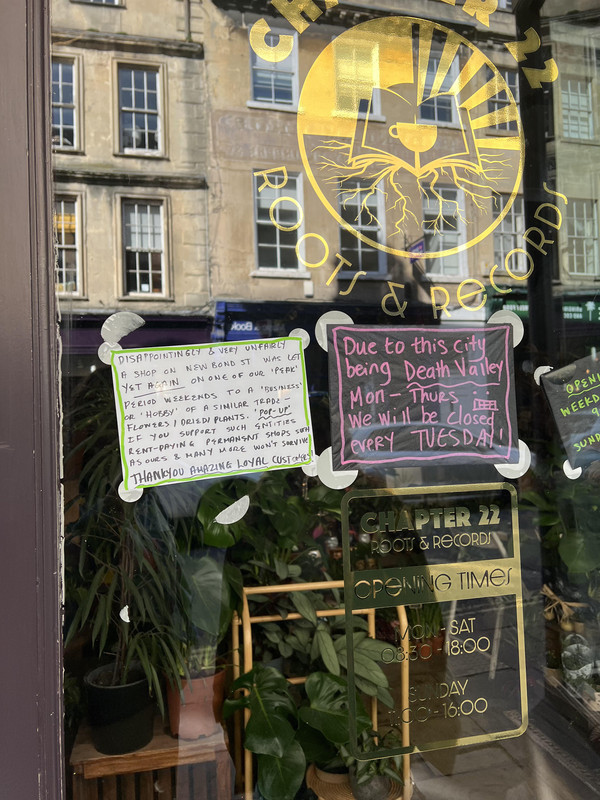 CHAPTER 22
ROOTS & RECORDS
DISAPPOINTINGLY & VERY UNFAIRLY
A SHOP ON NEW BOND ST WAS LET
YET AGAIN ON ONE OF OUR 'PEAK'
PERIOD WEEKENDS TO A 'BUSINESS'
OR 'HOBBY' OF A SIMILAR TRADE -
FLOWERS / DRIED/ PLANTS. 'POP-UP'
IF YOU SUPPORT SUCH ENTITIES
RENT-PAYING PERMANENT SHOPS SUCH
AS OURS & MANY MORE WON'T SURVIVE
THANKYOU AMAZING LOYAL CUSTOMERS
Due to this city
being Death Valley
Mon - Thurs
We will be closed
every TUESDAY!
CHAPTER 22
ROOTS & RECORDS
OPENING TIMES
MON - SAT
08:30 - 18:00
SUNDAY
- 16:00